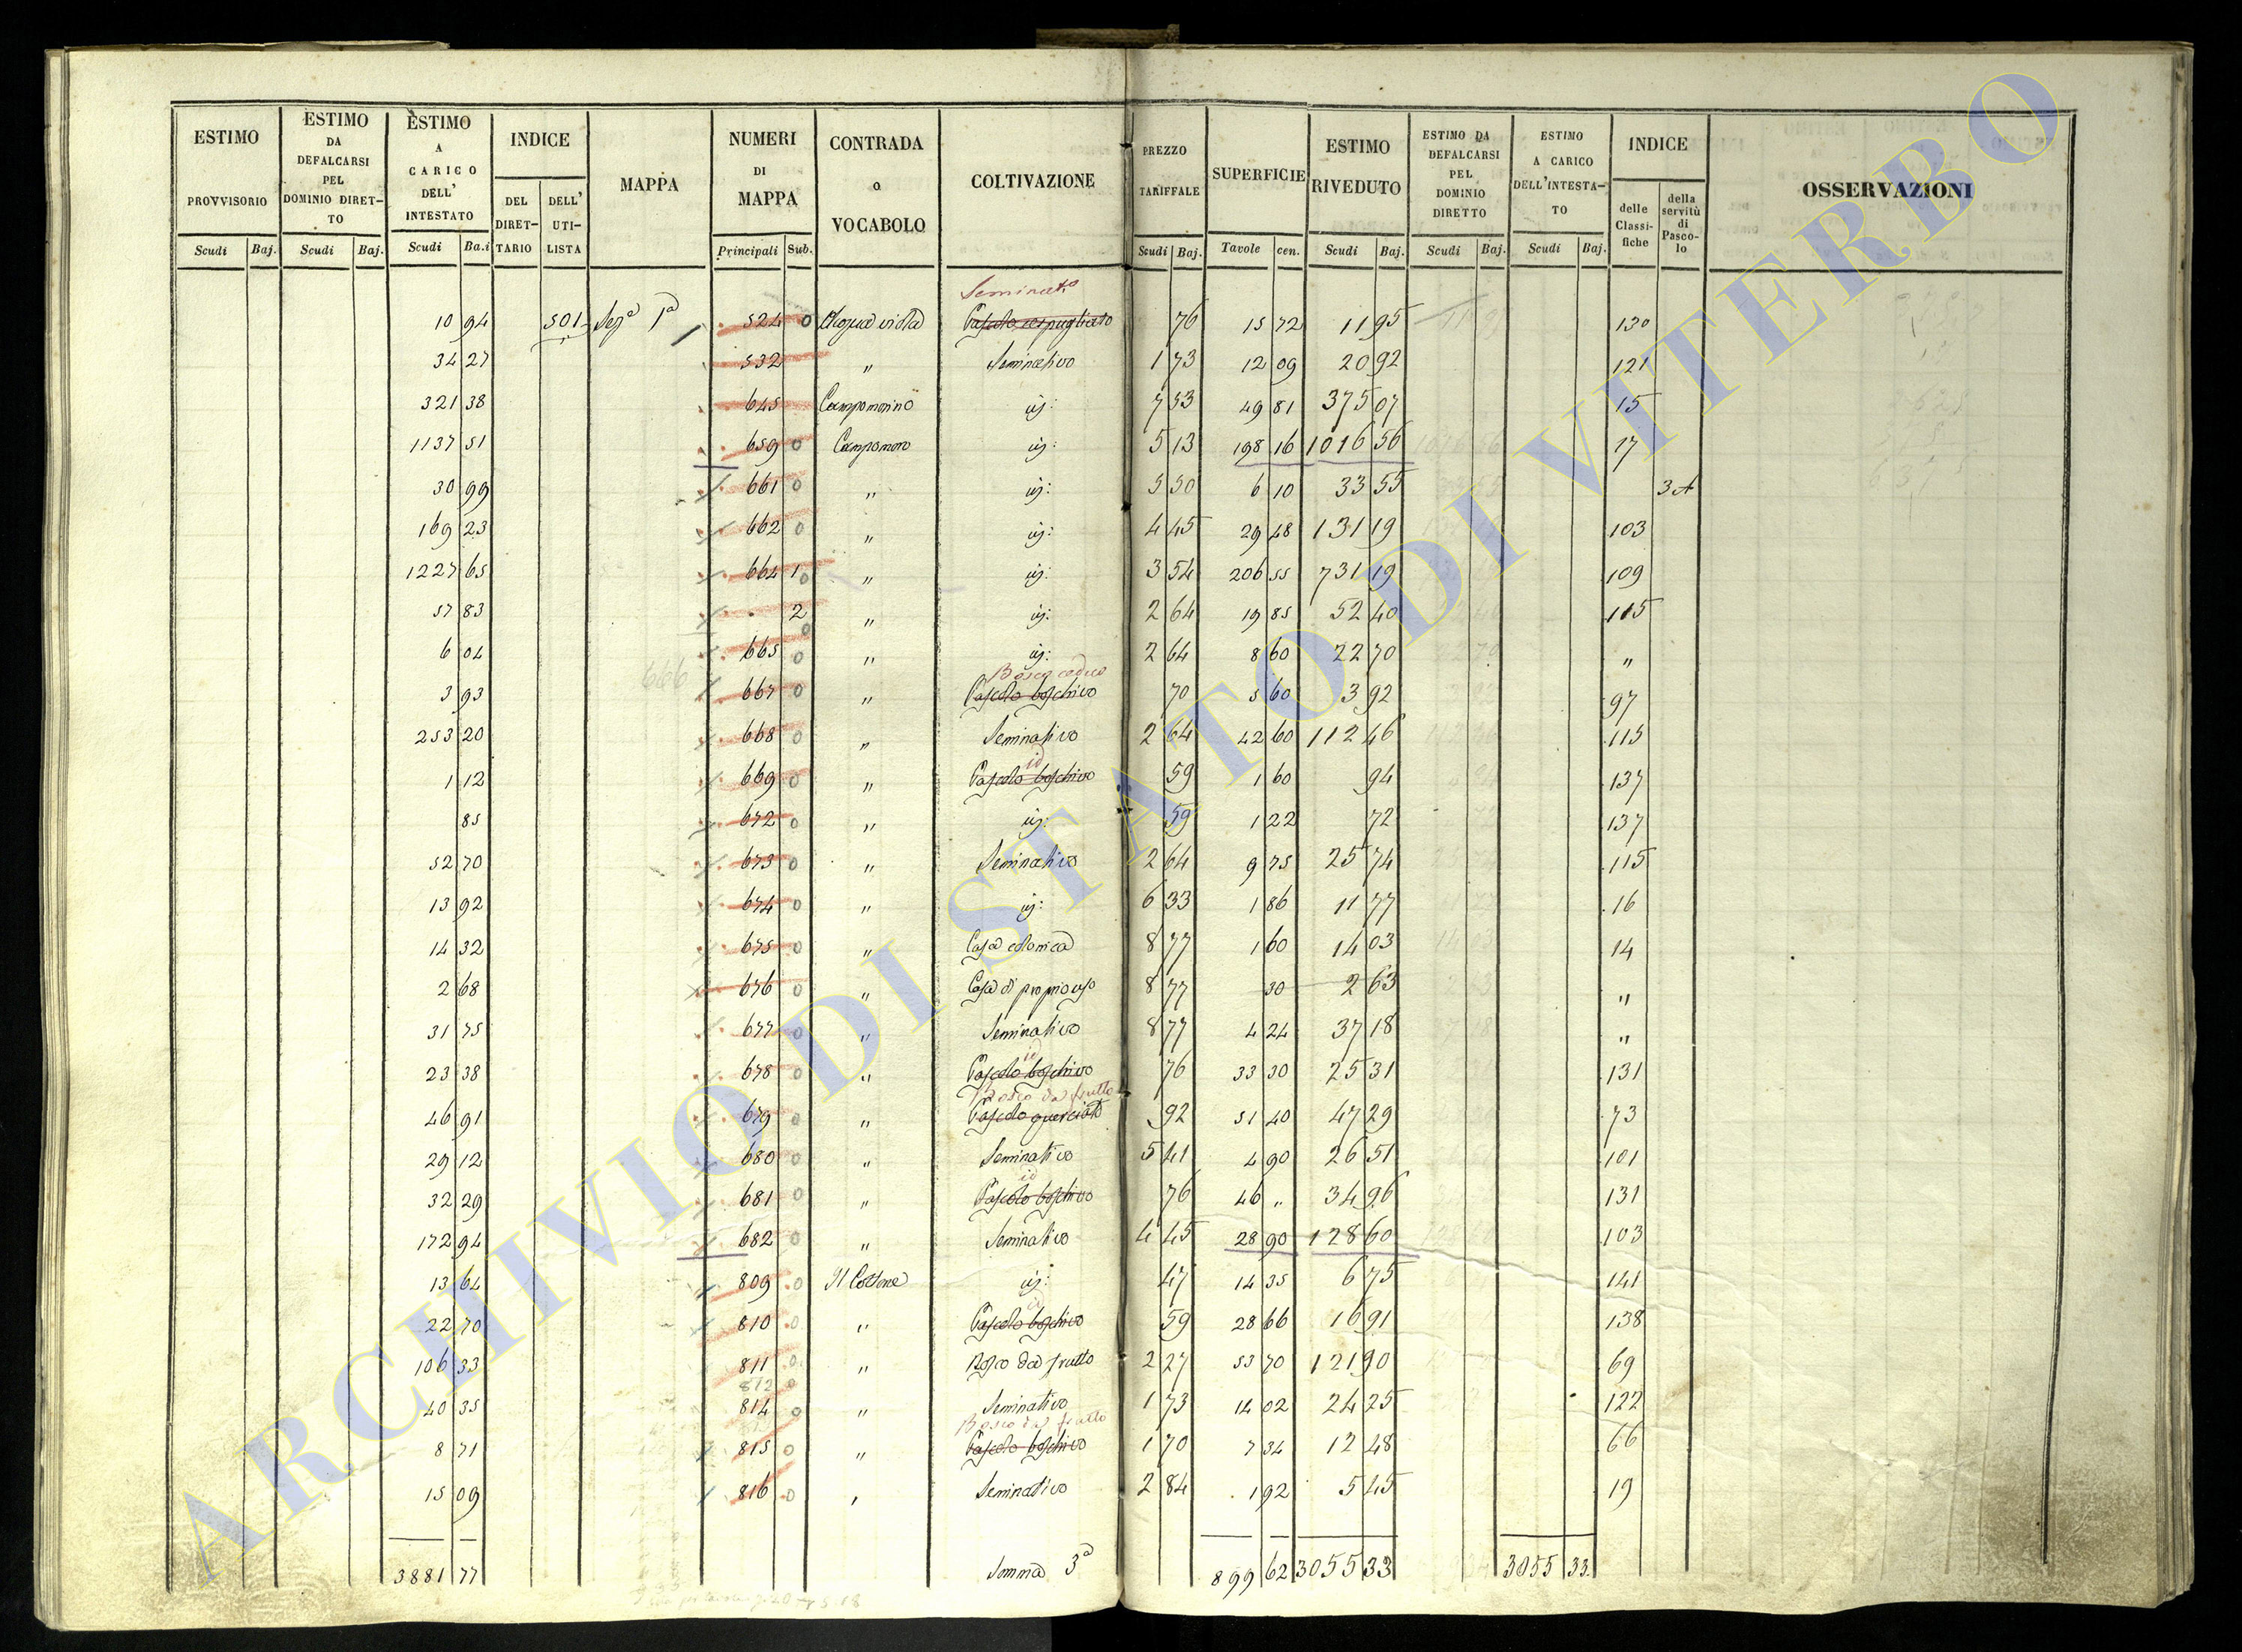 ESTIMO PROVVISORIO Scudi Baj.
ESTIMO DA DEFALCARSI PEL DOMINIO DIRET-TO Scudi Baj.
ESTIMO A CARICO DELL' INTESTATO Scudi Ba.i
INDICE DEL DIRET-TARIO DELL' UTI-LISTA
MAPPA
NUMERI DI MAPPA Principali Sub.
CONTRADA o VOCABOLO
COLTIVAZIONE
PREZZO TARIFFALE Scudi Baj.
SUPERFICIE Tavole cen.
ESTIMO RIVEDUTO Scudi Baj.
ESTIMO DA DEFALCARSI PEL DOMINIO DIRETTO Scudi Baj.
ESTIMO A CARICO DELL'INTESTA-TO Scudi Baj.
INDICE delle Classi-fiche della servitù di Pasco-lo
OSSERVAZIONI
Seminato
10 94 501 Sez.ª 1ª 524 0 Acqua viola Pascolo cespugliato 76 15 72 11 95 130
34 27 532 " Seminativo 1 73 12 09 20 92 121
321 38 645 Campomorino id: 7 53 49 81 375 07 15
1137 51 659 0 Campomoro id: 5 13 198 16 1016 56 17
30 99 661 0 " id: 5 50 6 10 33 55 3 A
169 23 662 0 " id: 4 45 29 48 131 19 103
1227 65 664 1 0 " id: 3 54 206 55 731 19 109
57 83 . 2 0 " id: 2 64 19 85 52 40 115
6 04 665 0 " id: 2 64 8 60 22 70 "
Bosco ceduo
3 93 666 667 0 " Pascolo boschivo 70 5 60 3 92 97
253 20 668 0 " Seminativo 2 64 42 60 112 46 115
id
1 12 669 0 " Pascolo boschivo 59 1 60 94 137
85 672 0 " id: 59 1 22 72 137
52 70 673 0 " Seminativo 2 64 9 75 25 74 115
13 92 674 0 " id: 6 33 1 86 11 77 16
14 32 675 0 " Casa colonica 8 77 1 60 14 03 14
2 68 676 0 " Casa di proprio uso 8 77 30 2 63 "
31 75 677 0 " Seminativo 8 77 4 24 37 18 "
id
23 38 678 0 " Pascolo boschivo 76 33 30 25 31 131
Bosco da frutto
46 91 679 0 " Pascolo querciato 92 51 40 47 29 73
29 12 680 0 " Seminativo 5 41 4 90 26 51 101
id
32 29 681 0 " Pascolo boschivo 76 46 " 34 96 131
172 94 682 0 " Seminativo 4 45 28 90 128 60 103
13 64 809 0 Il Cottone id: 47 14 35 6 75 141
id
22 70 810 0 " Pascolo boschivo 59 28 66 16 91 138
106 33 811 0 " Bosco da frutto 2 27 53 70 121 90 69
812 0
40 35 814 0 " Seminativo 1 73 14 02 24 25 122
Bosco da frutto
8 71 815 0 " Pascolo boschivo 1 70 7 34 12 48 66
15 09 816 0 " Seminativo 2 84 1 92 5 45 19
3881 77 Somma 3ª 899 62 3055 33 3055 33
ARCHIVIO DI STATO DI VITERBO